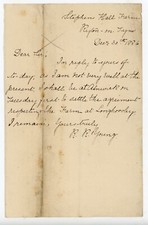 Stephens Hall Farm
Ryton on Tyne
Dear Sir,
In reply to yours of
to-day as I am not very well at the
present I shall be at
Tuesday next to settle the agreement
respecting the Farm at
I remain, Yours truly
R. R. Young